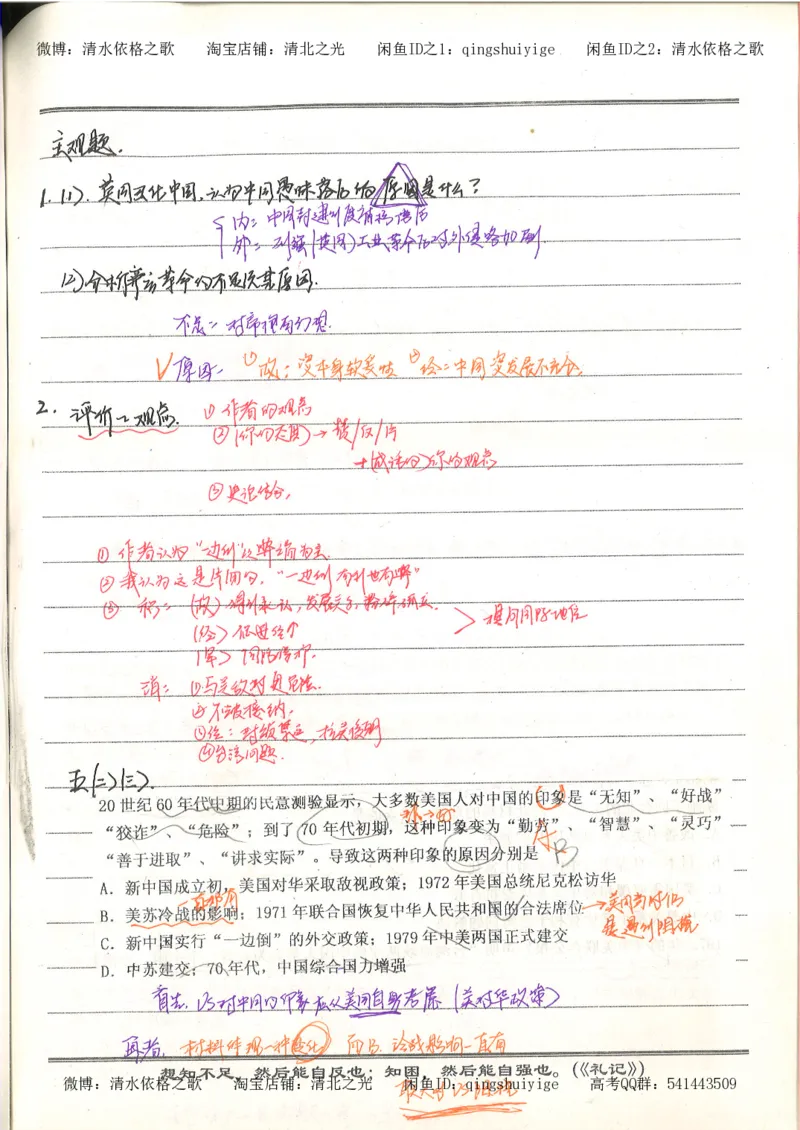 微博：清水依格之歌 淘宝店铺：清北之光 闲鱼ID之1：qingshuiyige 闲鱼ID之2：清水依格之歌
主观题.
1.(1). 英国丑化中国,认为中国愚昧落后的原因是什么?
内：中国封建制度
外：列强(英国)工业革命后对外侵略加剧.
(2)分析辛亥革命的不足及其原因.
不足：对帝抱有幻想.
√原因. ①政：资本身软弱性 ②经：中国资发展不充分.
2. 评价～观点. ①作者的观点
②(你的态度)→赞/反/片
+(成话的)你的观点
③史论结合.
①作者认为“一边倒”以弊端为主.
②我认为这是片面的,“一边倒有利也有弊”
③积：(政)得到承认,发展关系,
(经)促进经个
(军)国防
提高国际地位
消：①与美敌对
②不被接纳.
③经：封锁禁运,
④台湾问题.
五(二)(三).
20世纪60年代中期的民意测验显示，大多数美国人对中国的印象是“无知”、“好战”
“狡诈”、“危险”；到了70年代初期，这种印象变为“勤劳”、“智慧”、“灵巧”
“善于进取”、“讲求实际”。导致这两种印象的原因分别是 B
A．新中国成立初，美国对华采取敌视政策；1972年美国总统尼克松访华
一直都有
B．美苏冷战的影响；1971年联合国恢复中华人民共和国的合法席位→美国当时仍
是遏制阻挠
C．新中国实行“一边倒”的外交政策；1979年中美两国正式建交
D．中苏建交；70年代，中国综合国力增强
首先, US对中国的印象应从美国自身考虑(美对华政策)
再者, 材料体现一种变化 而B. 冷战影响一直有
想知不足，然后能自反也；知困，然后能自强也。(《礼记》)
微博：清水依格之歌 淘宝店铺：清北之光 闲鱼ID：qingshuiyige 高考QQ群：541443509